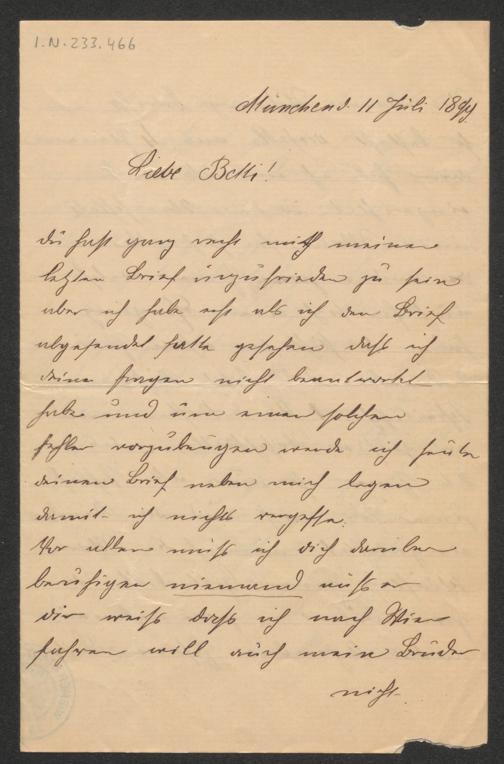 I.N. 233.466
München d. 11 Juli 1894
Liebe Betti!
du hast ganz recht mit meinen
letzten Brief unzufrieden zu sein
aber ich habe erst als ich den Brief
abgesendet hatte gesehen daß ich
deine fragen nicht beantwortet
habe und um einen solchen
fehler vorzubeugen werde ich heute
deinen Brief neben mich legen
damit ich nichts vergesse.
Vor allem muß ich dich darüber
beruhigen niemand außer
dir weiß daß ich nach Wien
fahren will auch mein Bruder
nicht.